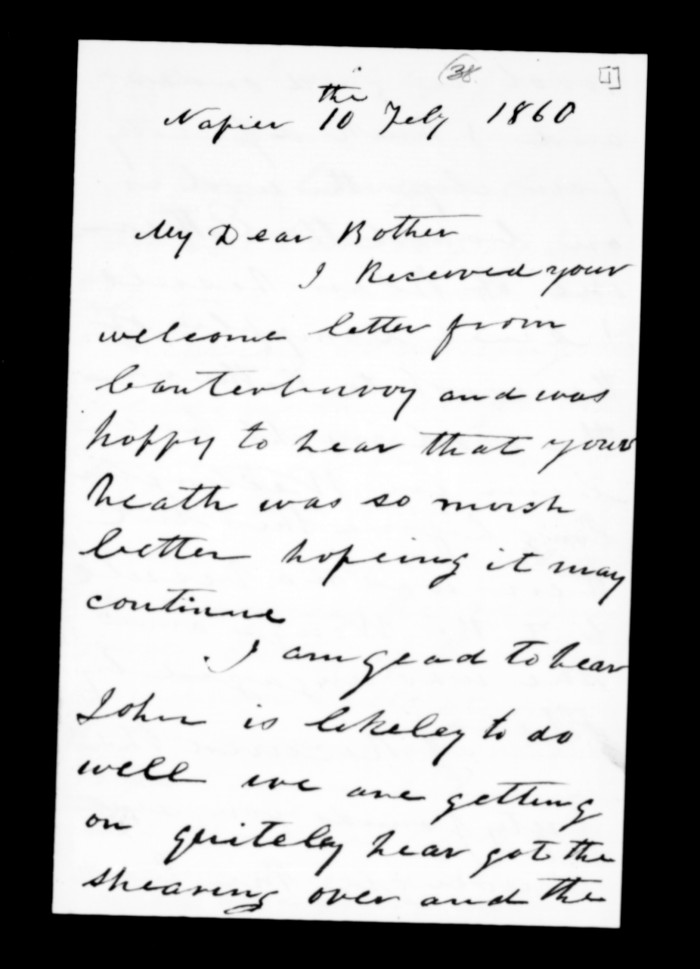 38 [1]
the
Napier 10 Feby 1860
My Dear Bother
I Receeved your
welcome letter from
Canterburoy and was
happy to hear that your
heath was so mush
better hopeing it may
continue
I am gead to hear
John is likeley to do
well we are getting
on quiteley hear got the
shearing over and the